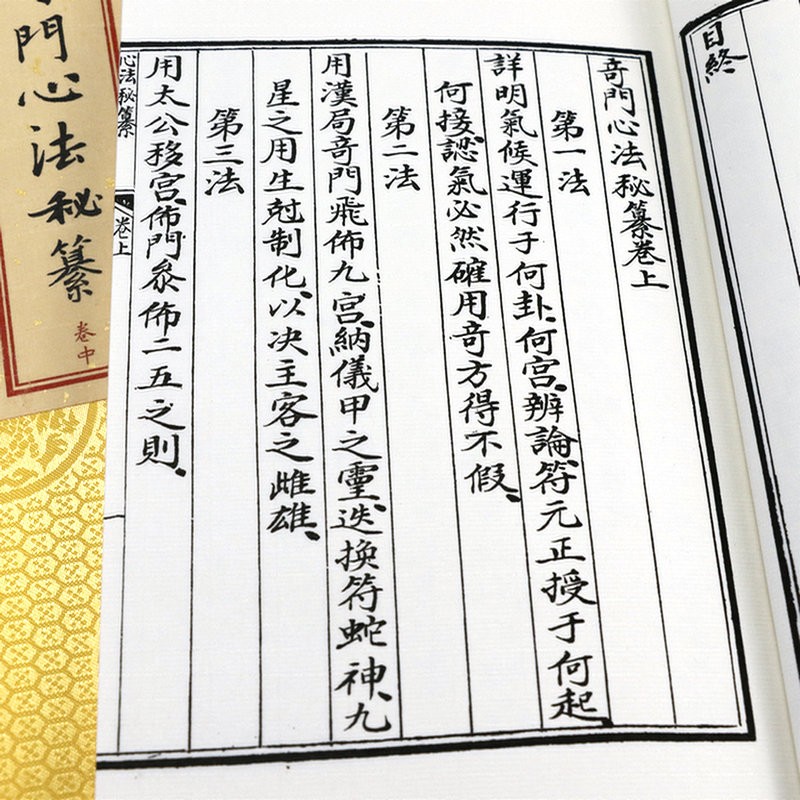 目終
奇門心法秘纂卷上
第一法
詳明氣候運行于何卦、何宮、辨論、符元正授于何起、
何接、認氣必然確用奇方得不假、
第二法
用漢局奇門飛佈九宮、納儀甲之靈、迭換符蛇神、九
星之用生尅制化、以决主客之雌雄、
第三法
用太公移宮、佈門叅佈二五之則、
心法秘纂
卷上
門心法秘纂
卷中